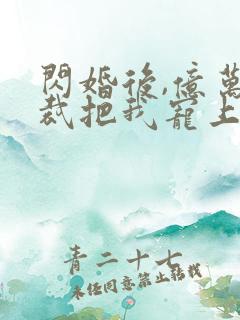 閃婚後,億萬
裁把我寵上
青二十七
未經同意禁止轉載